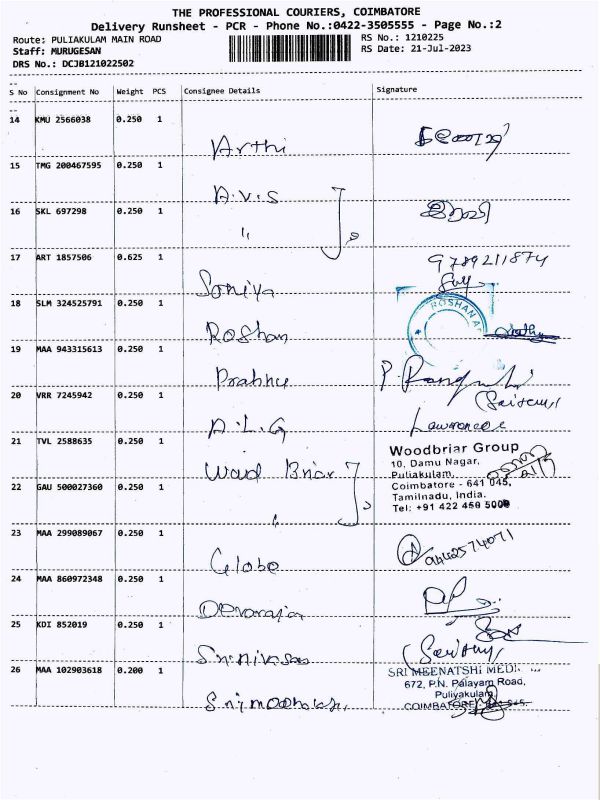 THE PROFESSIONAL COURIERS, COIMBATORE
Delivery Runsheet - PCR - Phone No.:0422-3505555 - Page No.:2
Route: PULIAKULAM MAIN ROAD
RS No.: 1210225
Staff: MURUGESAN
RS Date: 21-Jul-2023
DRS No.: DCJB121022502
S No Consignment No Weight PCS Consignee Details Signature
14 KMU 2566038 0.250 1
Arthi
15 TMG 200467595 0.250 1
A.V.S
16 SKL 697298 0.250 1
"
17 ART 1857506 0.625 1
9789211874
Soniya
18 SLM 324525791 0.250 1
ROSHAN
Roshan
19 MAA 943315613 0.250 1
Prabhu
20 VRR 7245942 0.250 1
A.L.G
Lawrence
21 TVL 2588635 0.250 1
Woodbriar Group
10, Damu Nagar,
Puliakulam,
Coimbatore - 641 045.
Tamilnadu, India.
Tel: +91 422 450 5000
Wood Briar
22 GAU 500027360 0.250 1
"
23 MAA 299089067 0.250 1
9442574071
Globe
24 MAA 860972348 0.250 1
Devaraja
25 KDI 852019 0.250 1
Srinivasan
26 MAA 102903618 0.200 1
SRI MEENATSHI MEDI
672, P.N. Palayam Road,
Puliyakulam,
COIMBATORE